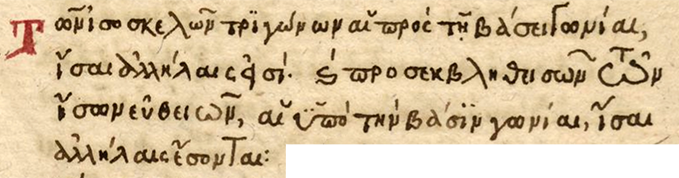 Τῶν ἰσοσκελῶν τριγώνων αἱ πρὸς τῇ βάσει γωνίαι,
ἴσαι ἀλλήλαις εἰσί. καὶ προσεκβληθεισῶν τῶν
ἴσων εὐθειῶν, αἱ ὑπὸ τὴν βάσιν γωνίαι, ἴσαι
ἀλλήλαις ἔσονται: